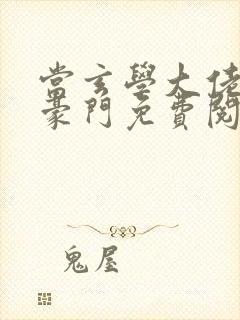 當玄學大佬
豪門免費閱
鬼屋